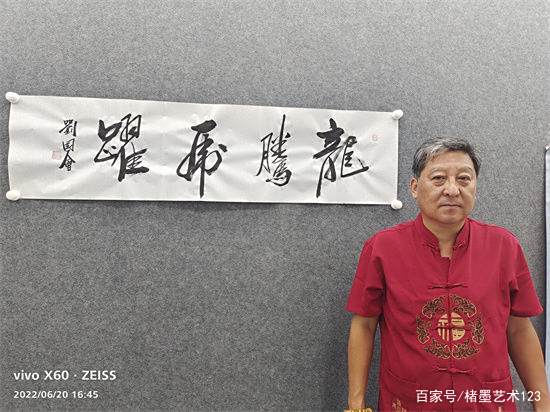 龍騰虎躍
劉国會
福
vivo X60 · ZEISS
2022/06/20 16:45
百家号/楮墨艺术123